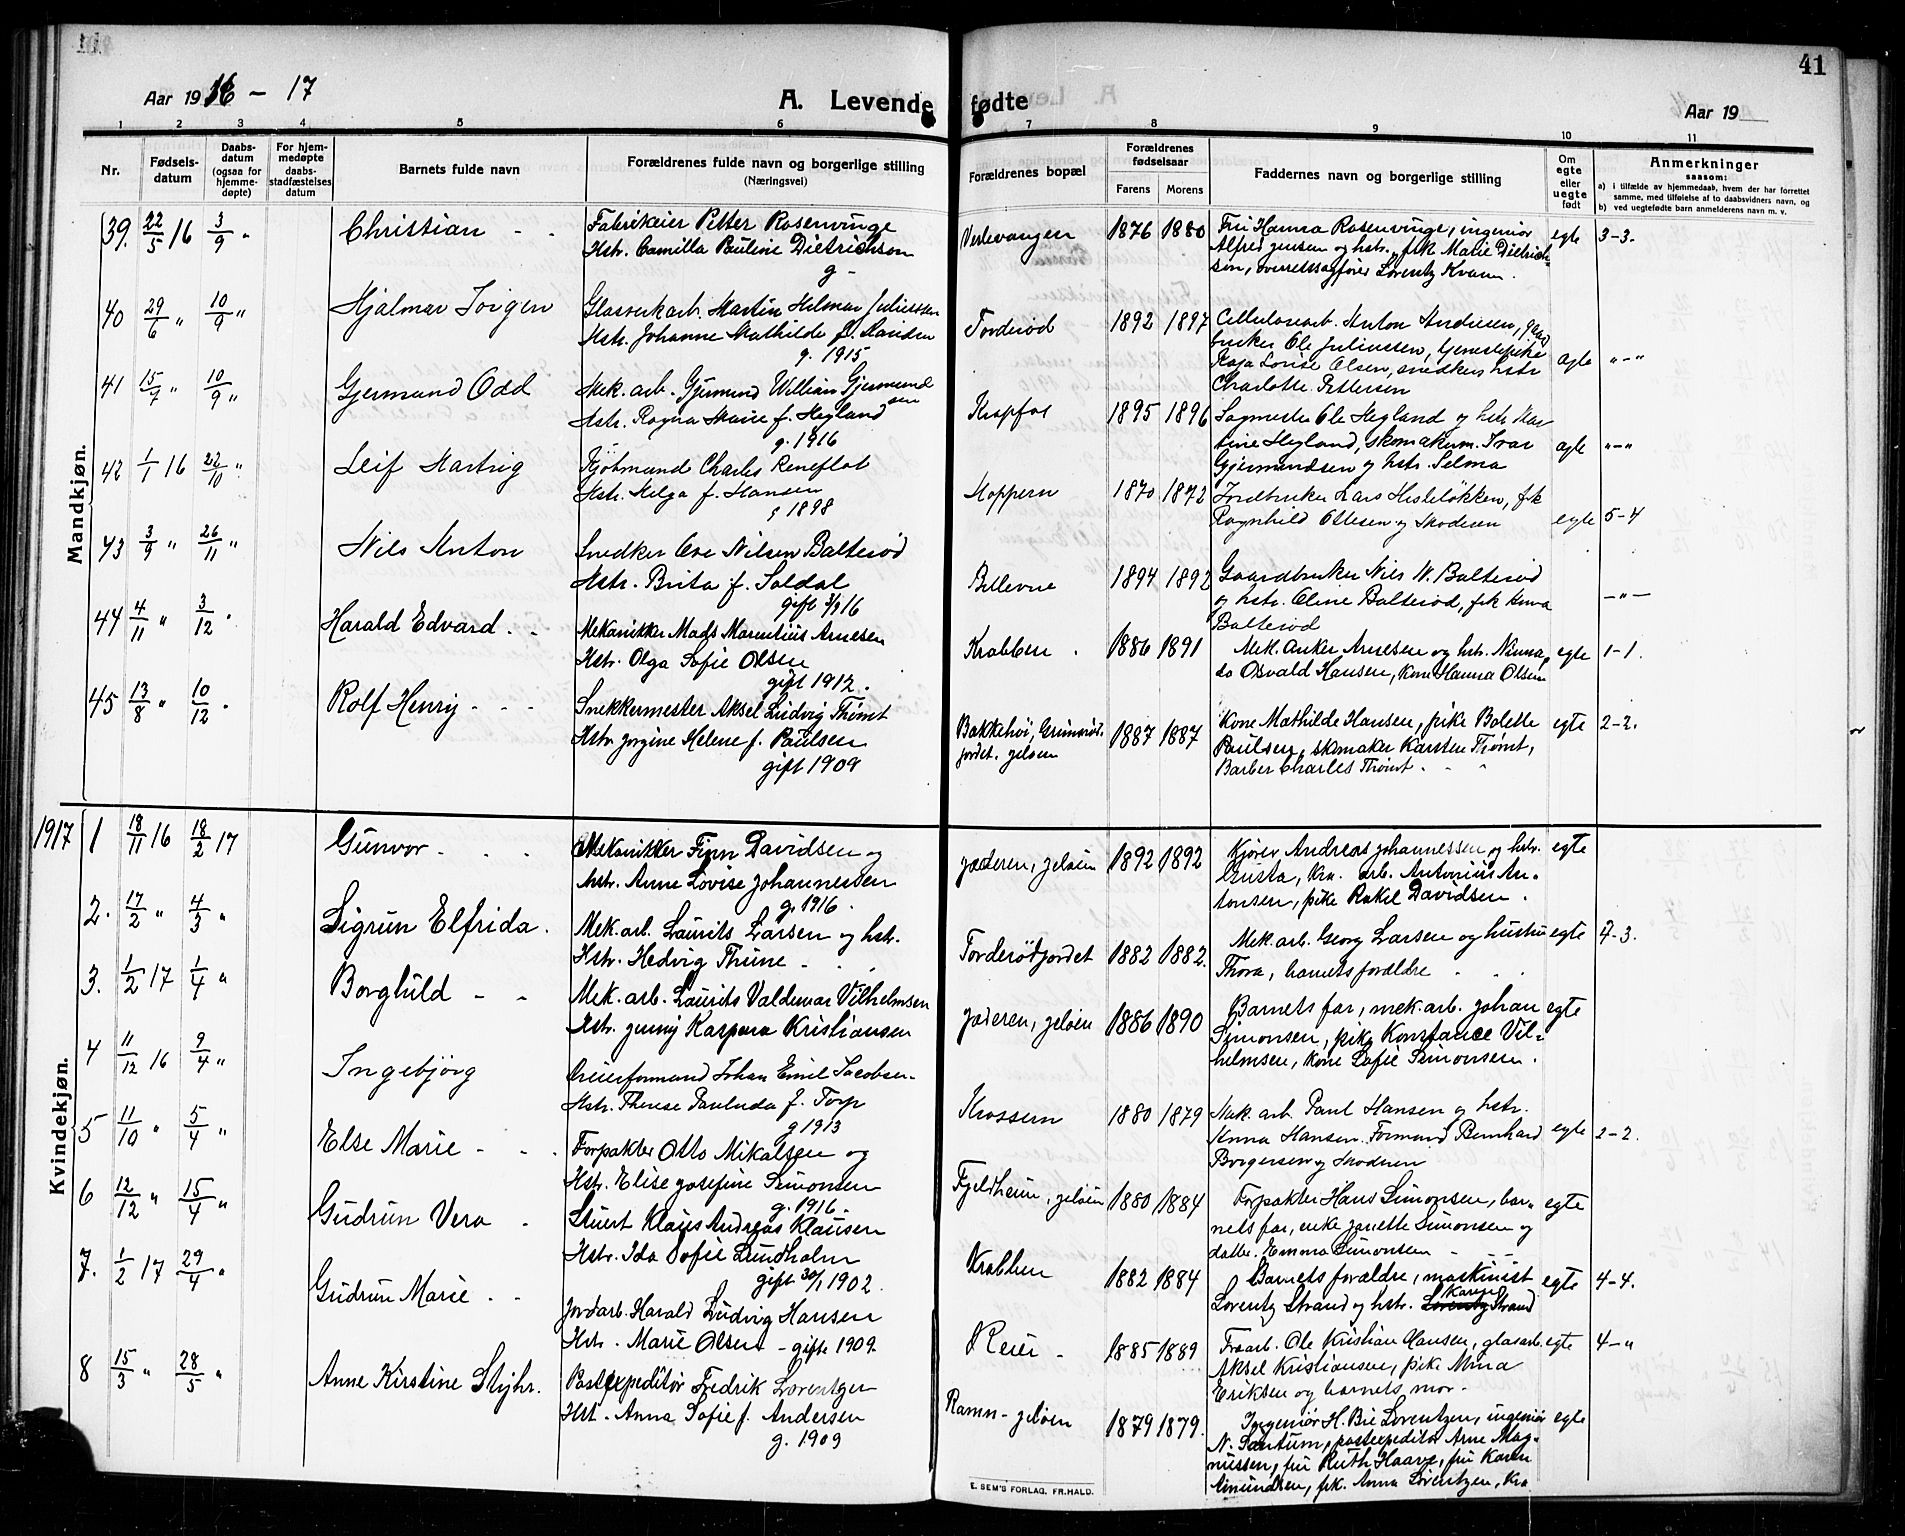 Aar 1916 - 17
A. Levende fødte
Aar 19
41
1 2 3 4 5 6 7 8 9 10 11
Nr.
Fødsels-
datum
Daabs-
datum
(ogsaa for
hjemme-
døpte)
For hjem-
medøpte
daabs-
stadfæstelses
datum
Barnets fulde navn
Forældrenes fulde navn og borgerlige stilling
(Næringsvei)
Forældrenes bopæl
Forældrenes
fødselsaar
Farens Morens
Faddernes navn og borgerlige stilling
Om
egte
eller
uegte
født
Anmerkninger
saasom:
a) i tilfælde av hjemmedaab, hvem der har forrettet
samme, med tilføielse af to daabsvidners navn, og
b) ved uegtefødte barn anmelderens navn m. v.
Mandkjøn.
39. 22/5 16 3/9 " Christian
Fabrikeier Petter Rosenvinge
Hstr. Camilla Pauline Dietrichson
g -
Verlevangen 1876 1880
Fru Hanna Rosenvinge, ingeniør
Alfred Jensen og hstr., frk Marie Dietrich-
son, overretssagfører Lorentz Kvam.
egte 3-3.
40 29/6 " 10/9 " Hjalmar Jørgen
Glassverkarb. Martin Hilmar Juliussen
Hstr. Johanne Mathilde f. Lauidsen
g. 1915
Torderød 1892 1897
Cellulosearb. Anton Andresen, gaard
bruker Ole Juliussen, tjenestepike
Kaja Lovise Olsen, snedkers hstr
Charlotte Pettersen
egte "-"
41 15/7 " 10/9 " Gjermund Odd
Mek. arb. Gjermund William Gjermund
sen
Hstr. Ragna Marie f. Hegland
g. 1916
Krapfos 1895 1896
Sagmester Ole Hegland og hstr Mar
tine Hegland, skomakerm. Ivar
Gjermundsen og hstr. Selma
egte "-"
42 1/1 16 22/10 " Leif Hartvig
Kjøbmand Charles Reneflot
Hstr. Helga f. Hansen
g 1898
Moppern 1870 1872
Jordbruker Lars Hesteløkken, frk
Ragnhild Ottesen og Moderen
egte 5-4
43 3/9 " 26/11 " Nils Anton
Snedker Ove Nilsen Balterød
Hstr. Brita f. Soldal
gift 3/9 16
Bellevue 1894 1892
Gaardbruker Nils W. Balterød
og hstr. Oline Balterød, frk Anna
Balterød
-"-
44 4/11 " 3/12 " Harald Edvard
Mekanikker Mads Marentius Arnesen
Hstr. Olga Sofie Olsen
gift 1912.
Krabben 1886 1891
Mek. Anker Arnesen og hstr. Ninna,
do Osvald Hansen, kone Hanna Olsen
egte 1-1.
45 13/8 " 10/12 " Rolf Henry
Snekkermester Aksel Ludvig Thømt
Hstr. Jørgine Helene f. Paulsen
gift 1909
Bakkehøi, Grimsrød
jordet. Jeløen 1887 1887
Kone Mathilde Hansen, pike Bolette
Paulsen, skomaker Karsten Thømt,
Barber Charles Thømt
egte 2-2.
Kvindekjøn.
1917 1 18/11 16 18/2 17 Gunvor
Mekanikker Finn Davidsen og
hstr. Anne Lovise Johannessen
g. 1916.
Jæderen, Jeløen 1892 1892
Kjører Andreas Johannessen og hstr.
Gusta, Kra. arb. Antonius An-
tonsen, pike Rakel Davidsen.
egte
2. 17/2 " 4/3 " Sigrun Elfrida
Mek. arb. Laurits Larsen og hstr.
Hstr. Hedvig Thune
Torderødjordet 1882 1882.
Mek. arb. Georg Larsen og hustru
Thora, barnets forældre
egte 4-3.
3. 1/2 17 1/4 " Borghild
Mek. arb. Laurits Valdemar Vilhelmsen
Hstr. Jenny Kaspara Kristiansen
Jæderen, Jeløen 1886 1890
Barnets far, mek. arb. Johan
Simonsen, pike Konstance Vil-
helmsen, kone Sofie Simonsen.
egte
4 11/12 16 9/4 " Ingebjørg
Breierformand Johan Emil Jacobsen
Hstr. Therese Paulunda f. Torp
g 1913
Krossern 1880 1879
Mek. arb. Paul Hansen og hstr.
Anna Hansen. Formand Bernhard
Borgersen og Moderen
egte 2-2.
5 11/10 " 5/4 " Else Marie
Forpakter Otto Mikalsen og
Hstr. Elise Josefine Simonsen
g. 1916.
Fjeldheim, Jeløen 1880 1884
Forpakter Hans Simonsen, bar-
nets far, enke Janette Simonsen og
datter Emma Simonsen
egte
6 12/12 " 15/4 " Gudrun Vera
Stuert Klaus Andreas Klausen
Hstr. Ida Sofie Lundholm
gift 30/1 1902.
Krabben 1882 1884
Barnets forældre, maskinist
Lorentz Strand og hstr. Karen Lorentz Strand
egte 4-4.
7. 1/2 17 29/4 " Gudrun Marie
Jordarb. Harald Ludvig Hansen
Hstr. Marie Olsen - gift 1909.
Reier 1885 1889
Fraarb. Ole Kristian Hansen, glasarb.
Aksel Kristiansen, pike Mina
Eriksen og barnets mor.
egte 4-"
8 15/3 " 28/5 " Anne Kirstine Styhr.
Postexpeditør Fredrik Lorentzen
Hst. Anna Sofie f. Andersen
g. 1909
Ramn - Jeløen 1879 1879.
Ingeniør H. Bie Lorentzen, ingeniør
N. Santum, postexpeditør Arne Mag-
nussen, fru Ruth Haave, fru Karen
Amundsen, frk. Anna Lorentzen, Kra
egte
E. SEM'S FORLAG, FR.HALD.